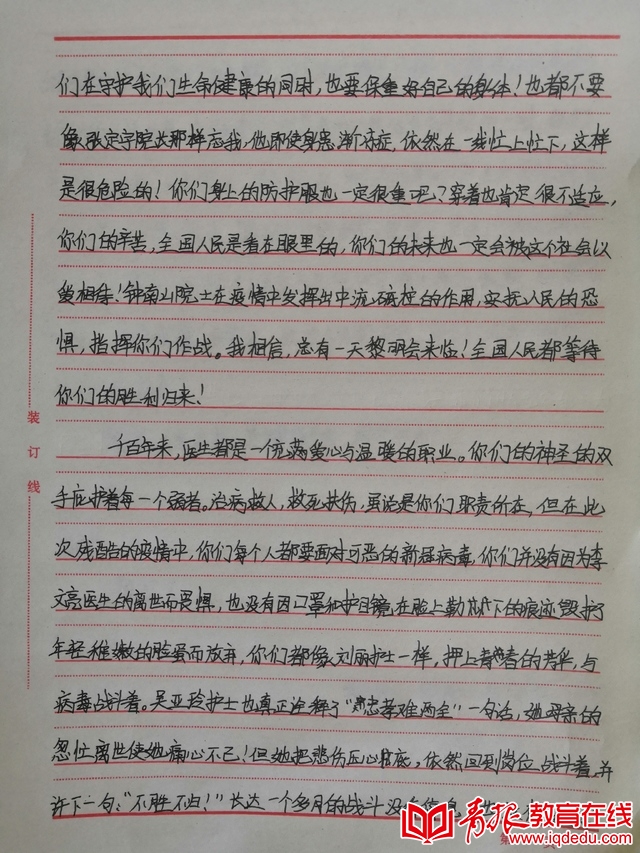 们在守护我们生命健康的同时，也要保重好自己的身体！也都不要
像张定宇院长那样忘我，他即使身患渐冻症，依然在一线忙上忙下，这样
是很危险的！你们身上的防护服也一定很重吧？穿着也肯定很不适应，
你们的辛苦，全国人民是看在眼里的，你们的未来也一定会被这个社会以
爱相待！钟南山院士在疫情中发挥出中流砥柱的作用，安抚人民的恐
惧，指挥你们作战。我相信，总有一天黎明会来临！全国人民都等待
你们的胜利归来！
千百年来，医生都是一个充满爱心与温暖的职业。你们的神圣的双
手庇护着每一个弱者。治病救人，救死扶伤，虽说是你们职责所在，但在此
次残酷的疫情中，你们每个人都要面对可恶的新冠病毒，你们并没有因为李
文亮医生的离世而畏惧，也没有因口罩和护目镜在脸上勒下的痕迹毁护了
年轻稚嫩的脸蛋而放弃，你们都像刘丽护士一样，押上青春的芳华，与
病毒战斗着。吴亚玲护士也真正诠释了“忠孝难两全”一句话，她母亲的
忽忙离世使她痛心不已！但她把悲伤压心底，依然回到岗位，战斗着，并
许下一句：“不胜不归！”长达一个多月的战斗没有
装订线
第
页
青报教育在线
www.iqdedu.com